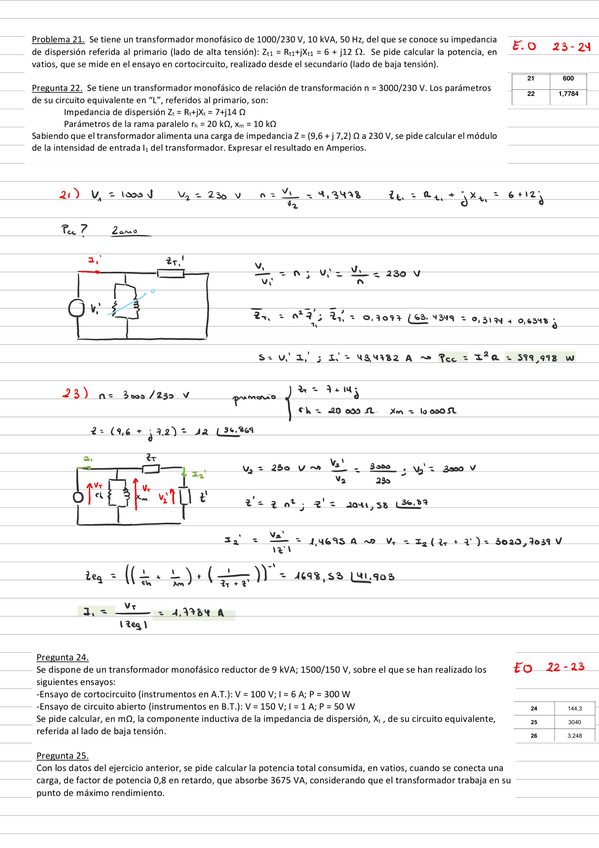 Problema 21. Se tiene un transformador monofásico de 1000/230 V, 10 kVA, 50 Hz, del que se conoce su impedancia
de dispersión referida al primario (lado de alta tensión): Zt1 = Rt1+jXt1 = 6 + j12 Ω. Se pide calcular la potencia, en
vatios, que se mide en el ensayo en cortocircuito, realizado desde el secundario (lado de baja tensión).
E.O 23-24
21 600
22 1,7784
Pregunta 22. Se tiene un transformador monofásico de relación de transformación n = 3000/230 V. Los parámetros
de su circuito equivalente en "L", referidos al primario, son:
Impedancia de dispersión Zt = Rt+jXt = 7+j14 Ω
Parámetros de la rama paralelo rh = 20 kΩ, xm = 10 kΩ
Sabiendo que el transformador alimenta una carga de impedancia Z = (9,6 + j 7,2) Ω a 230 V, se pide calcular el módulo
de la intensidad de entrada I1 del transformador. Expresar el resultado en Amperios.
21) V1 = 1000 V V2 = 230 V n = V1/V2 = 4,3478 Zt1 = Rt1 + j Xt1 = 6+12j
Pcc?
I1' ZT1'
V1'
V1/V1' = n ; V1' = V1/n = 230 V
ZT1 = n² ZT1' ; ZT1' = 0,7097 ∠63,4349 = 0,3174 + 0,6348j
S = V1' I1' ; I1' = 43,4782 A ⇝ Pcc = I² R = 599,998 W
23) n = 3000/230 V primario ZT = 7+14j
rh = 20 000 Ω xm = 10000Ω
Z = (9,6 + j 7,2) = 12 ∠36,869
I1 ZT I2'
VT rh VT xm V2' Z'
V2 = 230 V ⇝ V2'/V2 = 3000/230 ; V2' = 3000 V
Z' = Z n² ; Z' = 2041,58 ∠36,87
I2' = V2'/|Z'| = 1,4695 A ⇝ VT = I2 (ZT + Z') = 3020,7039 V
Zeq = ((1/rh + 1/xm) + (1/(ZT + Z')))⁻¹ = 1698,53 ∠41,903
I1 = VT/|Zeq| = 1,7784 A
Pregunta 24.
Se dispone de un transformador monofásico reductor de 9 kVA; 1500/150 V, sobre el que se han realizado los
siguientes ensayos:
-Ensayo de cortocircuito (instrumentos en A.T.): V = 100 V; I = 6 A; P = 300 W
-Ensayo de circuito abierto (instrumentos en B.T.): V = 150 V; I = 1 A; P = 50 W
Se pide calcular, en mΩ, la componente inductiva de la impedancia de dispersión, Xt , de su circuito equivalente,
referida al lado de baja tensión.
EO 22-23
24 144,3
25 3040
26 3,248
Pregunta 25.
Con los datos del ejercicio anterior, se pide calcular la potencia total consumida, en vatios, cuando se conecta una
carga, de factor de potencia 0,8 en retardo, que absorbe 3675 VA, considerando que el transformador trabaja en su
punto de máximo rendimiento.